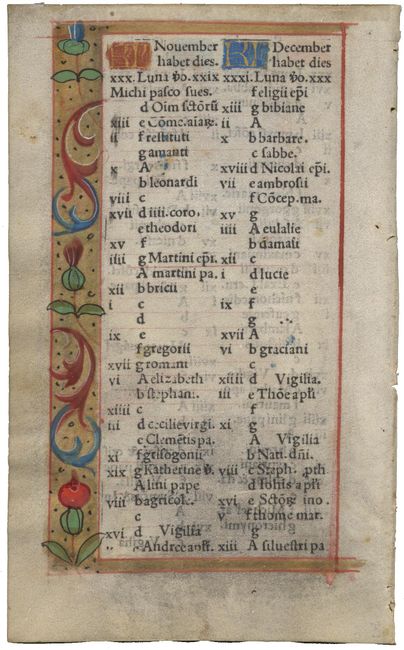 KL Nouember
habet dies.
xxx. Luna ỽo. xxix
Michi pasco sues.
d Oim sctōrū
xiii e Cōme. aiaꝝ.
ii f restituti
g amanti
x A
b leonardi
viii c
xvii d iiii. coro.
e theodori
xv f
iiii g Martini ep̄i.
A martini pa.
xii b bricii
i c
d
ix e
f gregorii
xvii g romani
vi A elizabeth
b stephani.
xiiii c
iii d cecilie virgi.
e Clemētis pa.
xi f grisogonii
xix g Katherine ỽ.
A lini pape
viii b agricol.
c
xvi d Vigilia
Andree
KL December
habet dies
xxxi. Luna ỽo. xxx
f eligii ep̄i
xiii g bibiane
ii A
x b barbare.
c sabbe.
xviii d Nicolai ep̄i.
vii e ambrosii
f Cōcep. ma.
xv g
iiii A eulalie
b damasi
xii c
i d lucie
e
ix f
g
xvii A
vi b graciani
c
xiiii d Vigilia.
iii e Thōe apl̄i
f
xi g
A Vigilia
b Nati. dn̄i.
viii c Steph. pth
d Iohis apl̄i
xvi e Sctōꝝ ino.
v f thome mar.
g
xiii A siluestri pa